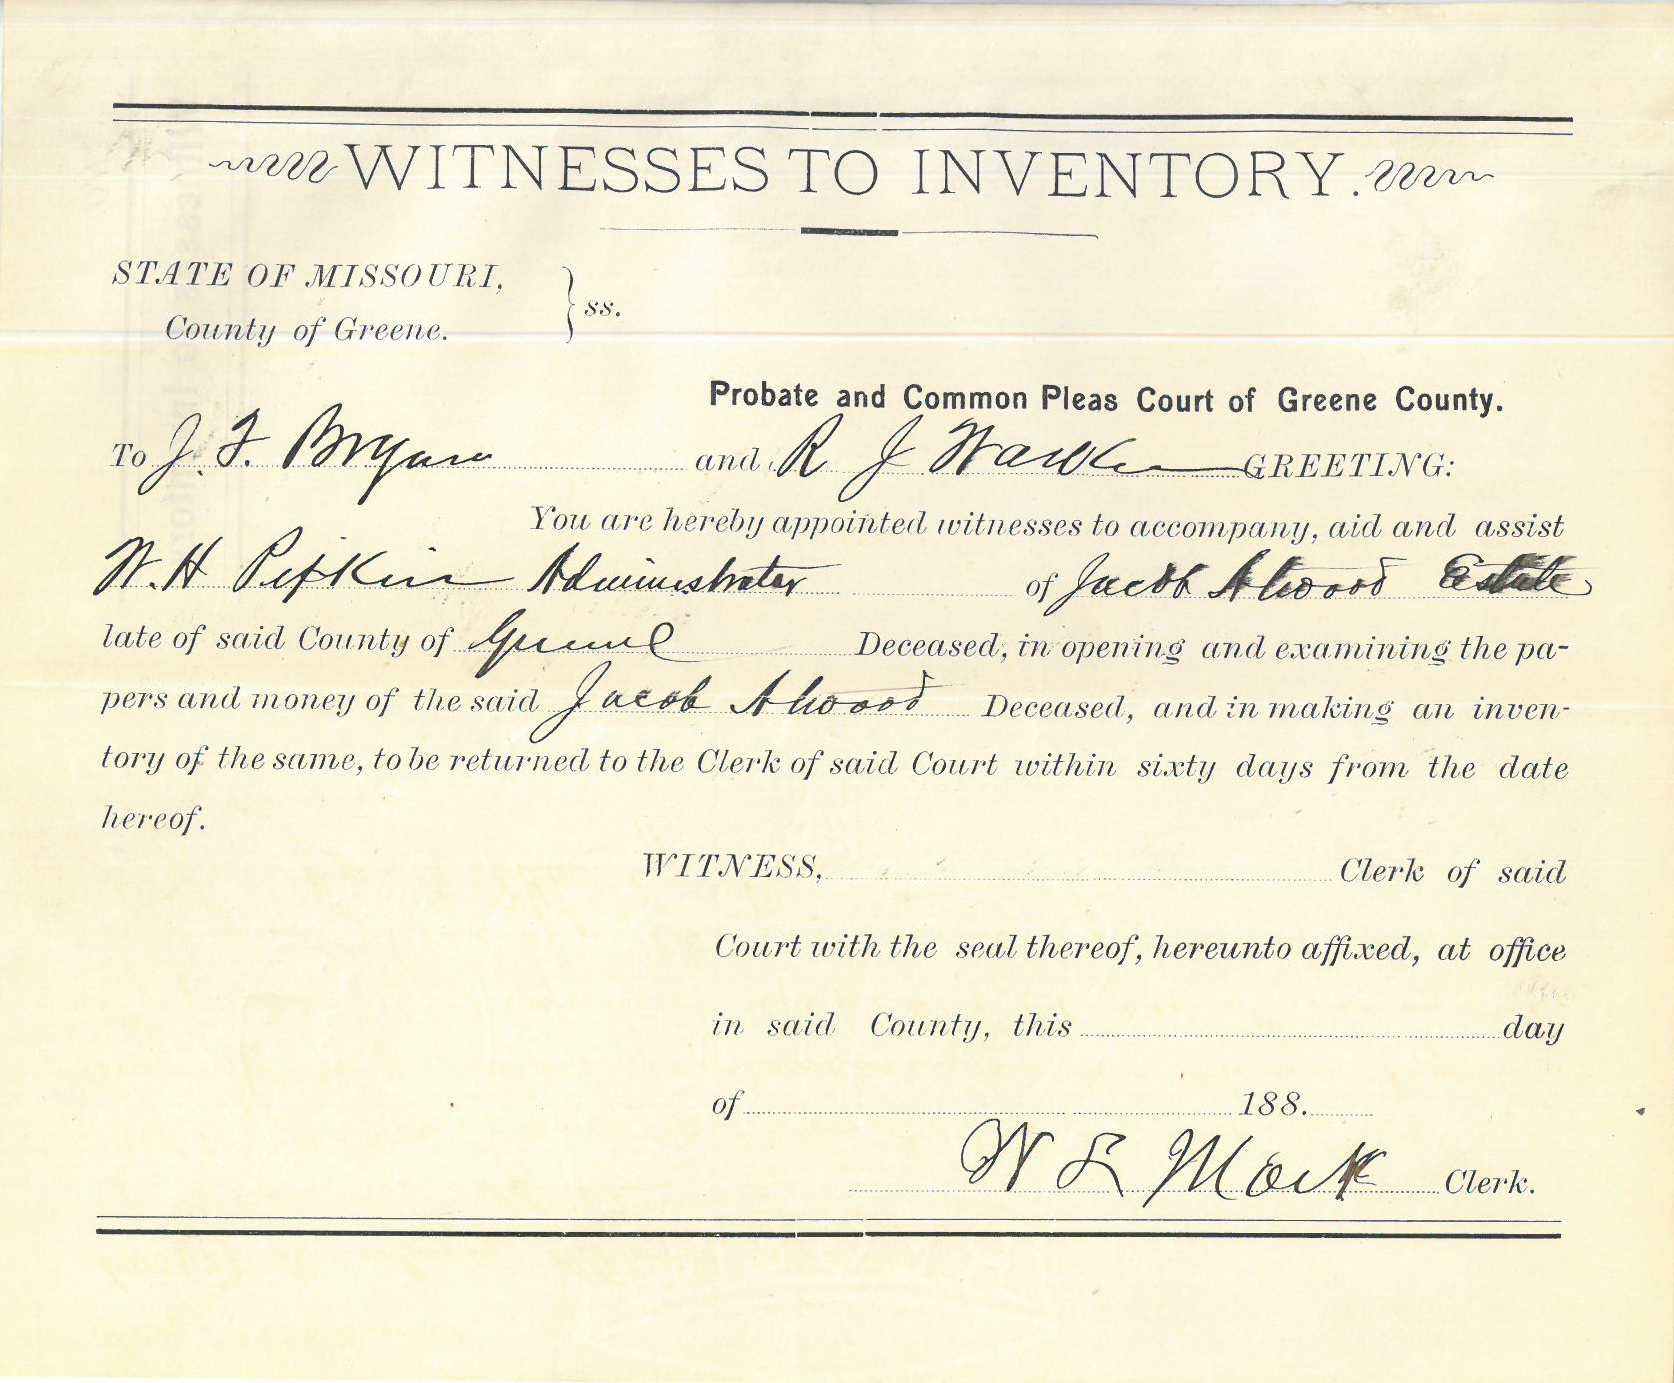 WITNESSES TO INVENTORY.
STATE OF MISSOURI,
County of Greene.
ss.
Probate and Common Pleas Court of Greene County.
To J. F. Bryan and R J Walker GREETING:
You are hereby appointed witnesses to accompany, aid and assist
W. H Pipkin Administrator of Jacob Atwood Estate
late of said County of Greene Deceased, in opening and examining the pa-
pers and money of the said Jacob Atwood Deceased, and in making an inven-
tory of the same, to be returned to the Clerk of said Court within sixty days from the date
hereof.
WITNESS, Clerk of said
Court with the seal thereof, hereunto affixed, at office
in said County, this day
of 188.
W L Mack Clerk.